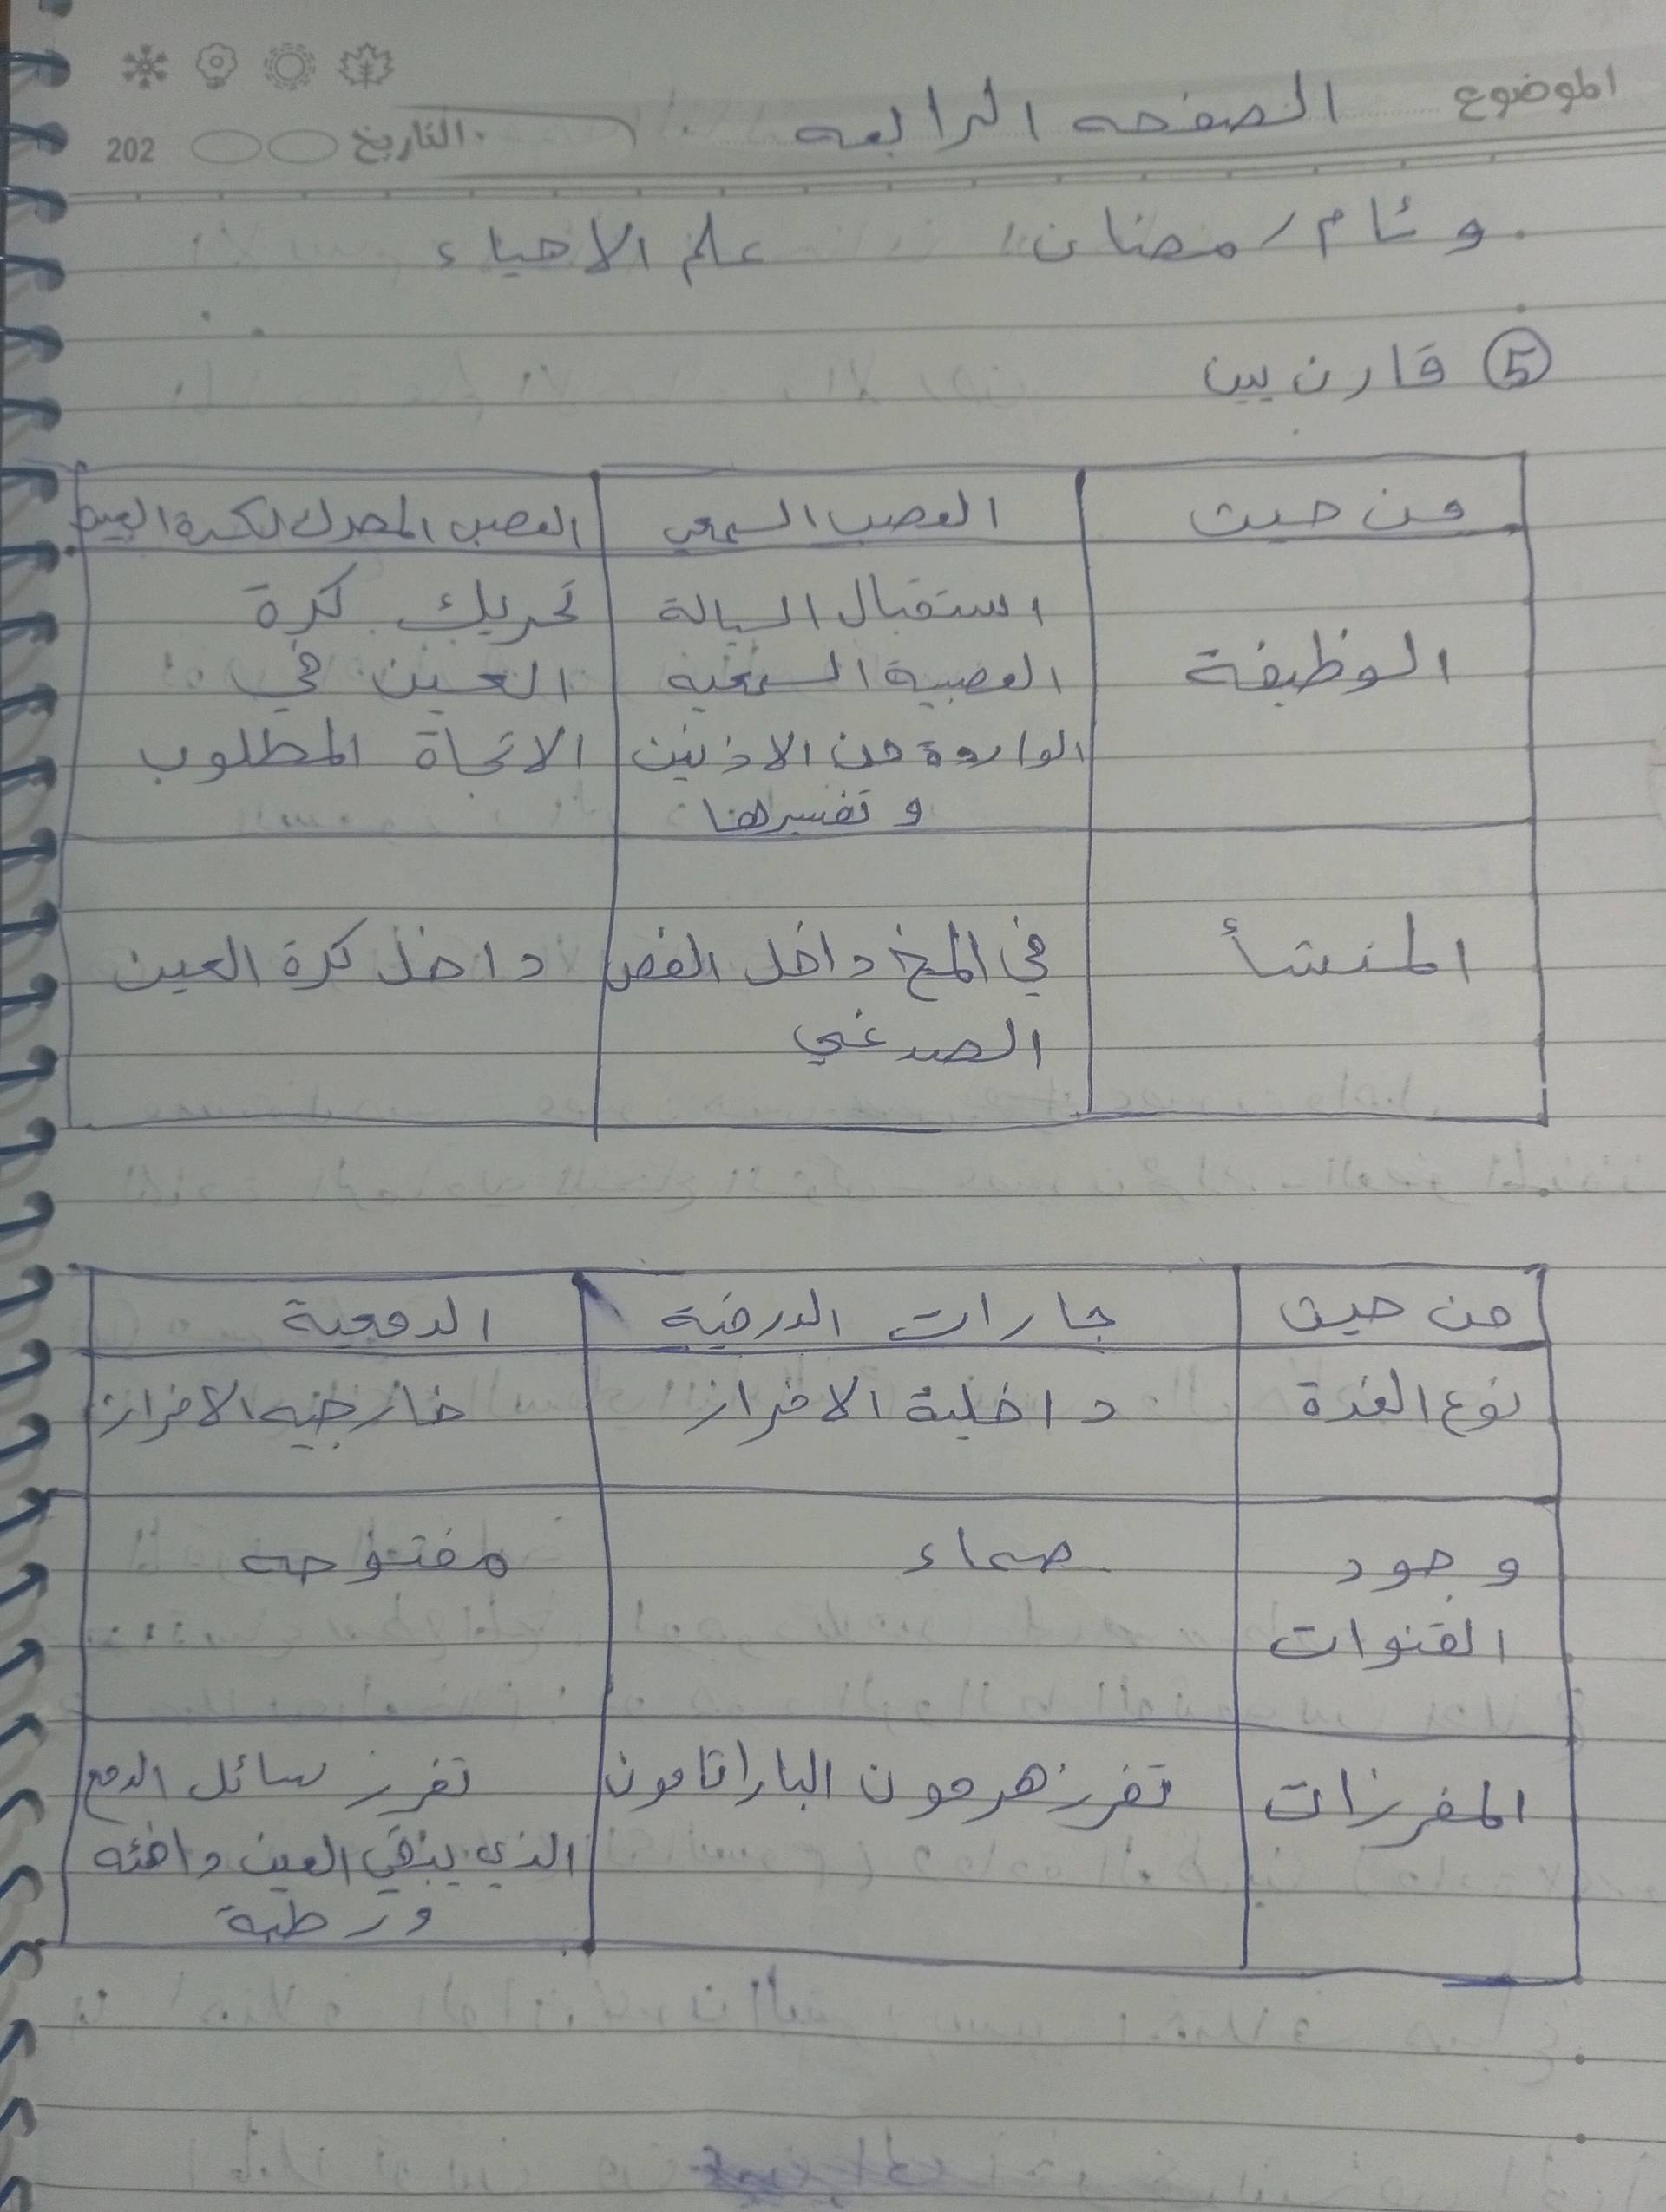 الموضوع الصفحه الرابعه
التاريخ 202
وئام رمضان علم الاحياء
5 قارن بين
من حيث العصب السمعي العصب المحرك لكرة العين
الوظيفة استقبال السيالة تحريك كرة
العصبية السمعيه العين في
الواردة من الاذنين الاتجاة المطلوب
و تفسيرها
المنشأ في المخ داخل الفص داخل كرة العين
الصدغي
من حيث جارات الدرقية الدمعية
نوع الغدة داخلية الافراز خارجيه الافراز
وجود صماء مفتوحه
القنوات
المفرزات تفرز هرمون الباراتامون تفرز سائل الدمع
الذي يبقي العين دافئه
ورطبة